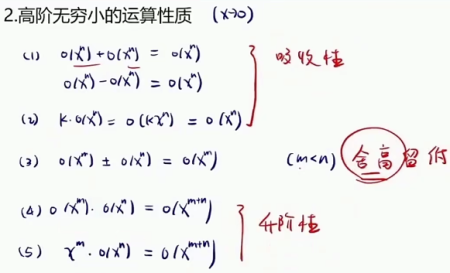 2.高阶无穷小的运算性质 (x→0)
(1) o(xⁿ)+o(xⁿ) = o(xⁿ)
o(xⁿ)-o(xⁿ) = o(xⁿ)
吸收性
(2) k·o(xⁿ)= o(kxⁿ) = o(xⁿ)
(3) o(xᵐ) ± o(xⁿ) = o(xᵐ) (m<n) 舍高留低
(4) o(xᵐ)·o(xⁿ) = o(xᵐ⁺ⁿ)
升阶性
(5) xᵐ·o(xⁿ) = o(xᵐ⁺ⁿ)